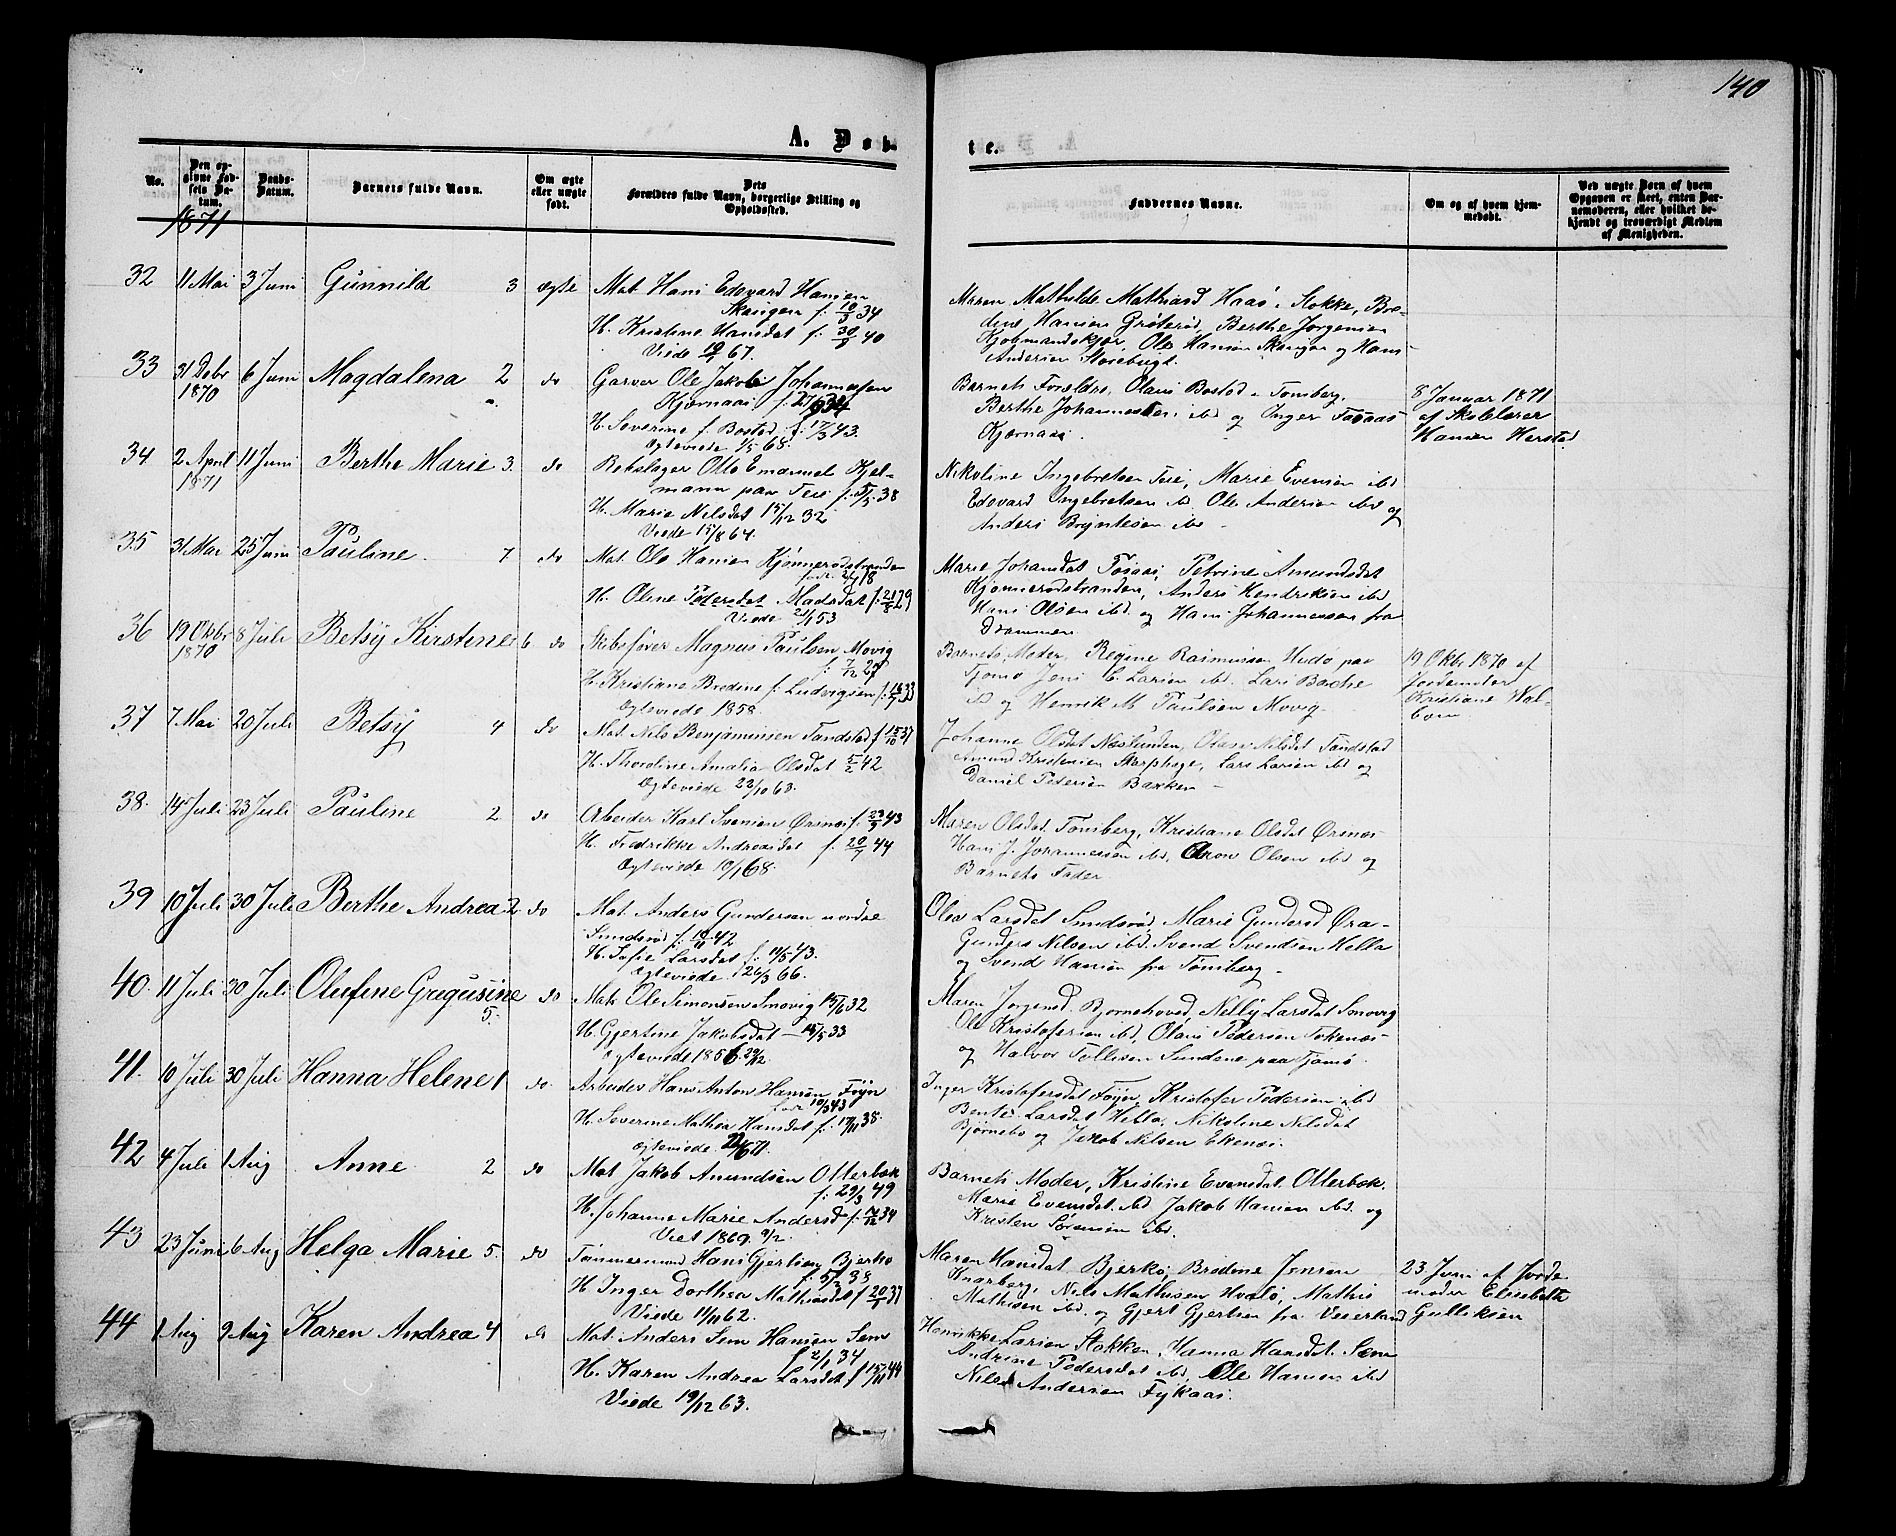 140
A. Døb-
te.
No.
Den op-
givne Fød-
sels Da-
tum.
Daabs-
Datum.
Barnets fulde Navn.
Om ægte
eller uægte
født.
Dets
Forældres fulde Navn, borgerlige Stilling og
Opholdssted.
Faddernes Navne.
Om og af hvem hjem-
medøbt.
Ved uægte Børn af hvem
Opgaven er skeet, enten Bar-
nemoderen, eller hvilket be-
kjendt og troværdigt Medlem
af Menigheden.
1871
32 11 Mai 3 Juni Gunnild 3 ægte Mat. Hans Edevard Hansen
Skangen f. 10/3 34
H. Kristine Hansdat f. 30/9 40
Viede 67.
Maren Mathilde Mathiasd Haas. Stokke, Bre-
dine Hansen Grøterød, Berthe Jørgensen
Kjøbmandskjær, Ole Hansen Skangen og Hans
Andersen Storebugt.
33 31 Debr 6 Juni Magdalena 2 do Garver Ole Jakob Johannesen
1870
Kjærnaas f.
H. Severine f. Bostod f. 17/3 43.
Ægteviede 1/5 68.
Barnets Forældre, Olaus Bostod Tønsberg,
Berthe Johannessen ibd og Inger
Kjærnaas.
8 Januar 1871
af Skolelærer
Hansen Herstad
34 2 April 11 Juni Berthe Marie 3. do Rebslager Otto Emanuel Kjel-
1871
mann paa Teie f. 5/5 38
H. Marie Nilsdat 15/12 32
Viede 15/8 64.
Nikoline Ingebretsen Teie, Marie Evensen ibd
Edevard Ingebretsen ibd Ole Andersen ibd og
Anders Bryntesen ibd
35 31 Mai 25 Juni Pauline. 7 do Mat. Ole Hansen Kjønnerødstranden
H. Oline Pedersdat Madsdat f. 21/8 29
Viede 21/1 53
Marie Johansdat Foiaas, Petrine Amundsdat
Kjønnerødstranden, Anders Hendriksen ibd
Hans Olsen ibd. og Hans Johannessen fra
Drammen.
36 19 Okbr 8 Juli Betsy Kirstine 6. do Skibsfører Magnus Paulsen Movig
1870
f. 7/12 27
H. Kristiane Bredine f. Ludvigsen f. 18/7 33
Ægteviede 1858
Barnets Moder, Regine Rasmussen Hvidø paa
Tjømø Jens C. Larsen ibd. Lars Bache
ibd og Henrik M Paulsen Movig
19 Okbr 1870 af
Jordemoder
Kristiane Wal-
bom
37 7 Mai 20 Juli Betsy 4 do Mat. Nils Benjaminsen Tandstad f. 15/10 37
H. Thordine Amalia Olsdat 5/2 42
Ægteviede 22/10 63.
Johanne Olsdat Næslunden, Olava Nilsdat Tandstad
Amund Kristensen, Lars Larsen ibd og
Daniel Pedersen Bakken
38. 14 Juli 23 Juli Pauline 2 do Arbeider Karl Svensen Ørsnæs f. 23/9 43
H. Fredrikke Andreasdat f. 20/7 44
Ægteviede 10/1 68.
Maren Olsdat Tønsberg, Kristiane Olsdat Ørsnæs
Hans J. Johannessen ibd, Aron Olsen ibd og
Barnets Fader.
39 10 Juli 30 Juli Berthe Andrea 2. do Mat. Anders Gundersen nordre
Smidsrød f. 42
H. Sofie Larsdat f. 11/5 43.
Ægteviede 26/3 66.
Olea Larsdat Smidsrød, Marie Gundersd Øra-
Gunders Nilsen ibd. Svend Svendsen Hella
og Svend Hansen fra Tønsberg
40. 11 Juli 30 Juli Olufine Gregusine 5. do Mat. Ole Simonsen Smovig 15/6 32
H. Gjertine Jakobsdat 15/5 33
Ægteviede 1856 29/12
Maren Jørgensd. Bjørnehoved, Nelly Larsdat Smovig
Ole Kristofersen ibd, Olaus Pedersen
og Halvor Tollesen Sundene paa Tjømø
41. 10 Juli 30 Juli Hanna Helene 1 do. Arbeider Hans Anton Hansen Føyn
født 10/3 43
H. Severine Mathea Hansdat f. 17/11 38.
Ægteviede
Inger Kristofersdat Føyn, Kristofer Pedersen ibd
Bente Larsdat Hella, Nikoline Nilsdat
Bjørnebo og Jakob Nilsen Ekenæs.
42 4 Juli 1 Aug Anne 2 do Mat. Jakob Amundsen Otterbæk
f. 29/3 49
H. Johanne Marie Andersd f. 34
Viet 1869.
Barnets Moder, Kristine Evensdat Otterbæk.
Marie Evensdat ibd. Jakob Hansen ibd. og
Kristen Sørensen ibd.
43 23 Juni 6 Aug Helga Marie 5. do Tømmermand Hans Gjertsen Bjerkø
f. 5/3 38
H. Inger Dorthea Mathiasdat f. 20/7 37
Viede 11/11 62.
Maren Hansdat Bjerkø, Bredine Jensen
Knarberg, Nils Mathisen Hvalø, Mathis
Mathisen ibd. og Gjert Gjertsen fra Veierland
23 Juni af Jorde
moder Elisabeth
Gulliksen
44 1 Aug 9 Aug Karen Andrea 4 do Mat. Anders Sem Hansen Sem
f. 2/1 34
H. Karen Andrea Larsdat f 15/11 44
Viede 19/12 63.
Henrikke Larsen Stokken, Hanna Hansdat Sem
Andrine Pedersdat ibd, Ole Hansen ibd
Nils Andersen Fykaas.